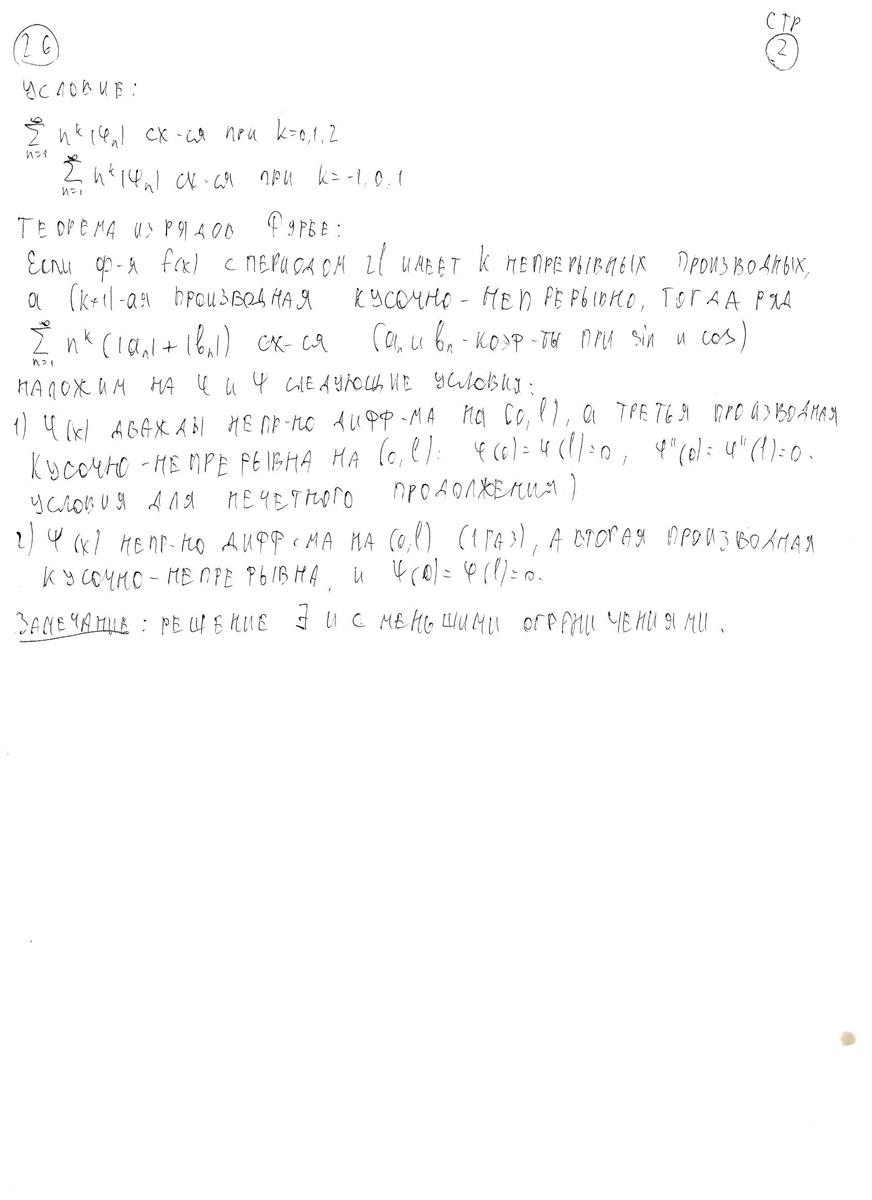 26
СТР
2
УСЛОВИЕ:
∞ ∑ n=1 n^k |φ_n| СХ-СЯ ПРИ k=0,1,2
∞ ∑ n=1 n^k |ψ_n| СХ-СЯ ПРИ k=-1,0,1
ТЕОРЕМА ИЗ РЯДОВ ФУРЬЕ:
ЕСЛИ Ф-Я f(x) С ПЕРИОДОМ 2l ИМЕЕТ k НЕПРЕРЫВНЫХ ПРОИЗВОДНЫХ,
а (k+1)-ая ПРОИЗВОДНАЯ КУСОЧНО-НЕПРЕРЫВНО, ТОГДА РЯД
∞ ∑ n=1 n^k (|a_n|+|b_n|) СХ-СЯ (a_n и b_n - КОЭФ-ТЫ ПРИ sin и cos)
НАЛОЖИМ НА φ И ψ СЛЕДУЮЩИЕ УСЛОВИЯ:
1) φ(x) ДВАЖДЫ НЕПР-НО ДИФФ-МА НА (0,l), а ТРЕТЬЯ ПРОИЗВОДНАЯ
КУСОЧНО-НЕПРЕРЫВНА НА (0,l): φ(0)=φ(l)=0, φ''(0)=φ''(l)=0.
УСЛОВИЯ ДЛЯ НЕЧЕТНОГО ПРОДОЛЖЕНИЯ)
2) ψ(x) НЕПР-НО ДИФФ-МА НА (0,l) (1 РАЗ), А ВТОРАЯ ПРОИЗВОДНАЯ
КУСОЧНО-НЕПРЕРЫВНА, И ψ(0)=ψ(l)=0.
ЗАМЕЧАНИЕ: РЕШЕНИЕ ∃ И С МЕНЬШИМИ ОГРАНИЧЕНИЯМИ.